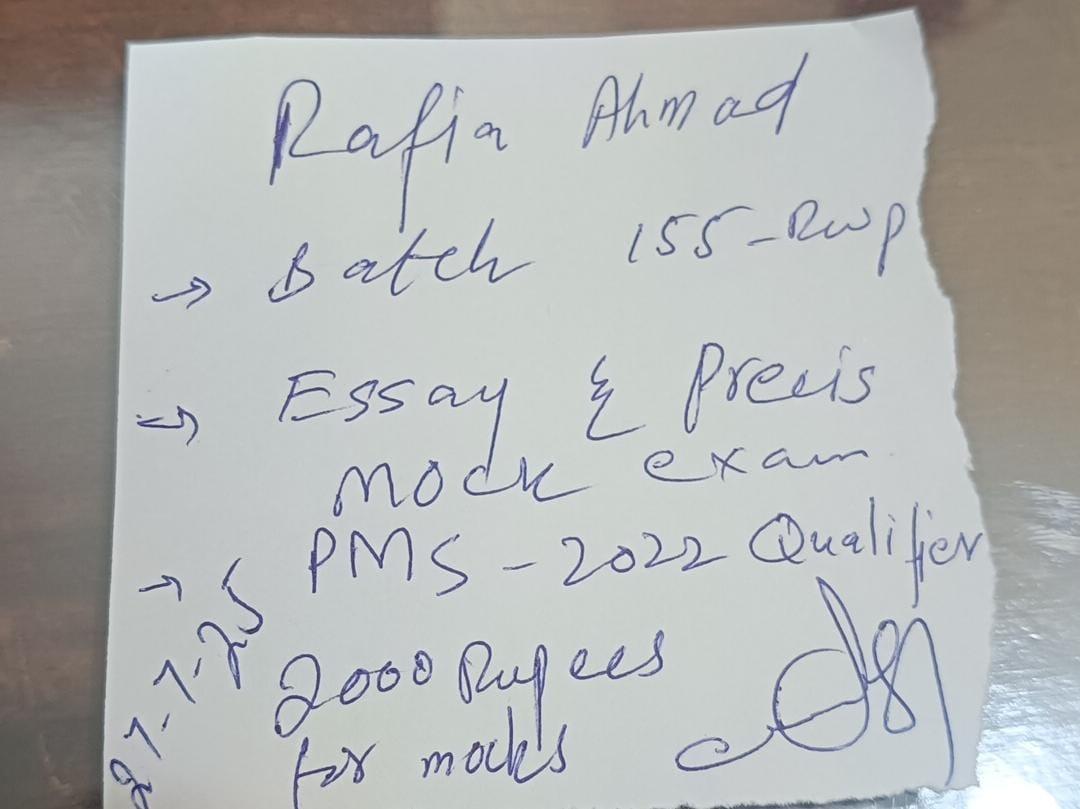 Rafia Ahmad
→ Batch 155-Rwp
→ Essay & Precis
Mock exam
→ PMS - 2022 Qualifier
2000 Rupees
for mocks